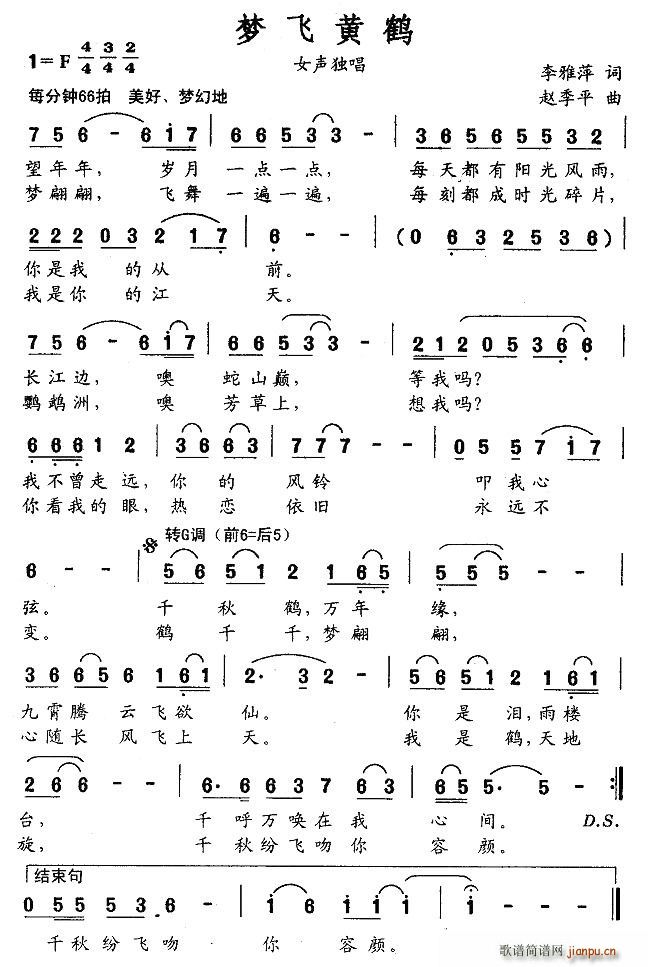 梦飞黄鹤
1=F 4/4 3/4 2/4
女声独唱
李雅萍 词
每分钟66拍 美好、梦幻地
赵季平 曲
7 5 6 - 6 i 7 | 6 6 5 3 3 - | 3 6 5 6 5 5 3 2 |
望年年, 岁月 一点一点, 每天都有阳光风雨,
梦翩翩, 飞舞 一遍一遍, 每刻都成时光碎片,
2 2 2 0 3 2 1 7 | 6 - - | (0 6 3 2 5 3 6) |
你是我 的从 前。
我是你 的江 天。
7 5 6 - 6 i 7 | 6 6 5 3 3 - | 2 1 2 0 5 3 6 6 |
长江边, 噢 蛇山巅, 等我吗?
鹦鹉洲, 噢 芳草上, 想我吗?
6 6 6 1 2 | 3 6 6 3 | 7 7 7 - - | 0 5 5 7 i 7 |
我不曾走远, 你的 风铃 叩我心
你看我的眼, 热恋 依旧 永远不
转G调(前6=后5)
6 - - | 5 6 5 1 2 1 6 5 | 5 5 5 - - |
弦。 千秋鹤, 万年 缘,
变。 鹤千千, 梦翩 翩,
3 6 6 5 6 1 6 1 | 2· 3 3 - - | 5 6 5 1 2 1 6 1 |
九霄腾 云飞欲 仙。 你是泪, 雨楼
心随长 风飞上 天。 我是鹤, 天地
2 6 6 - - | 6· 6 6 3 7 6 3 | 6 5 5 5· 5 - :|
台, 千呼万唤在我 心间。 D.S.
旋, 千秋纷飞吻你 容颜。
结束句
0 5 5 5 3 6· | 5 - - | i 6 i i i | i - - - |
千秋纷飞吻 你 容颜。
歌谱简谱网
jianpu.cn